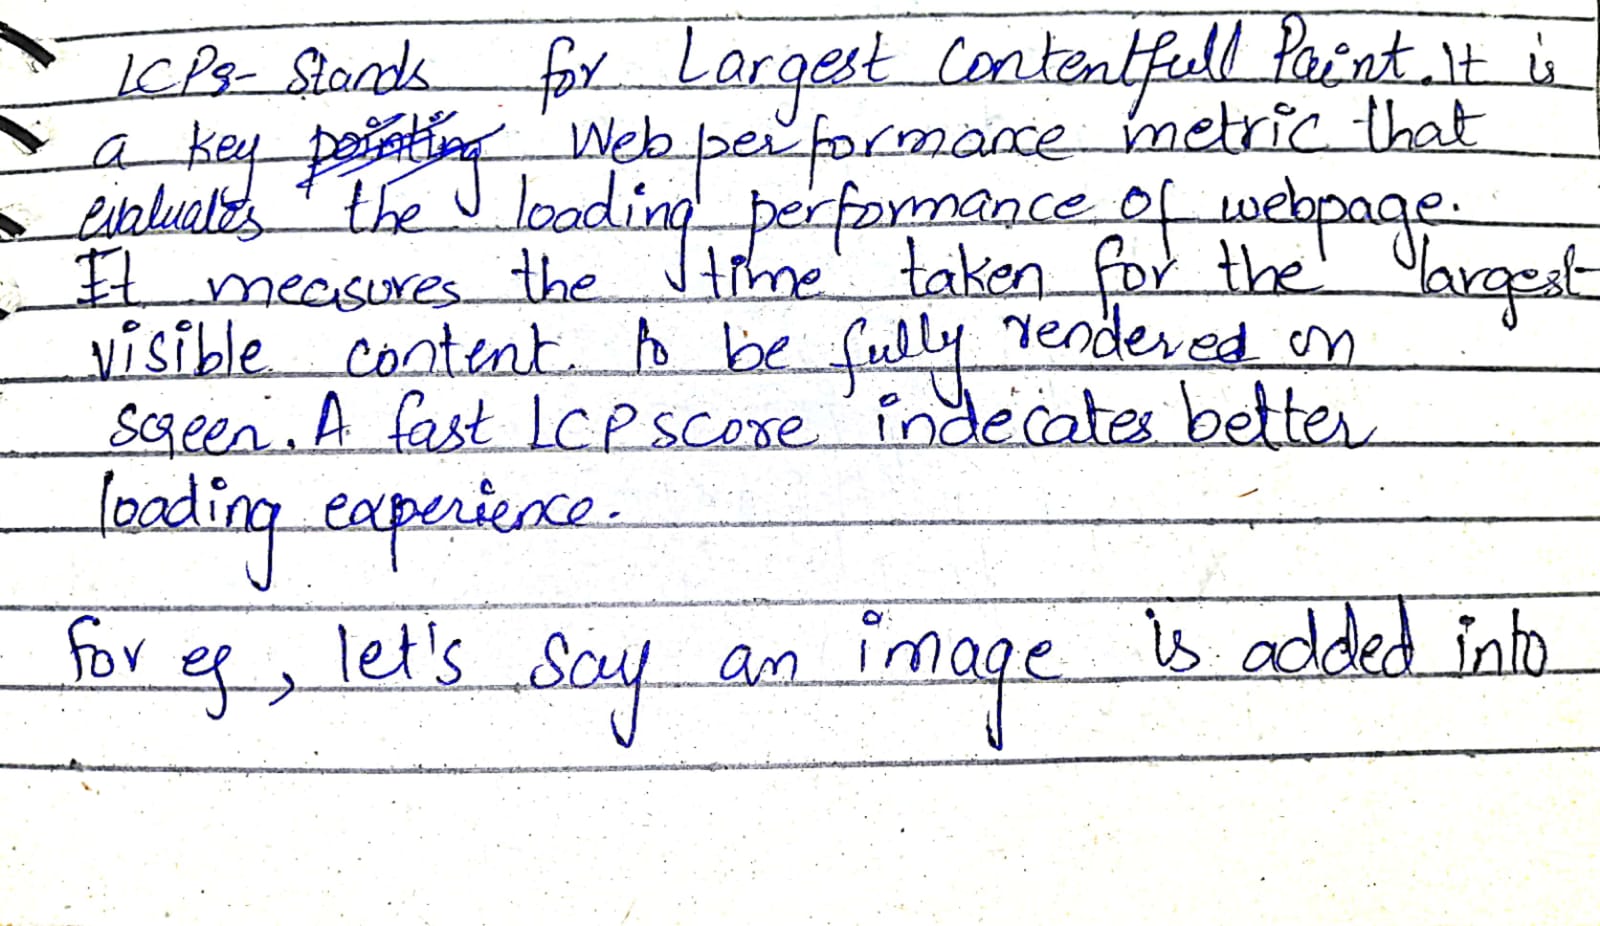 LCPs- Stands for Largest Contentfull Paint. It is
a key pointing Web performance metric that
evaluates the loading performance of webpage.
It measures the time taken for the largest
visible content. to be fully rendered on
screen. A fast LCP score indecates better
loading experience.
for eg, let's say an image is added into